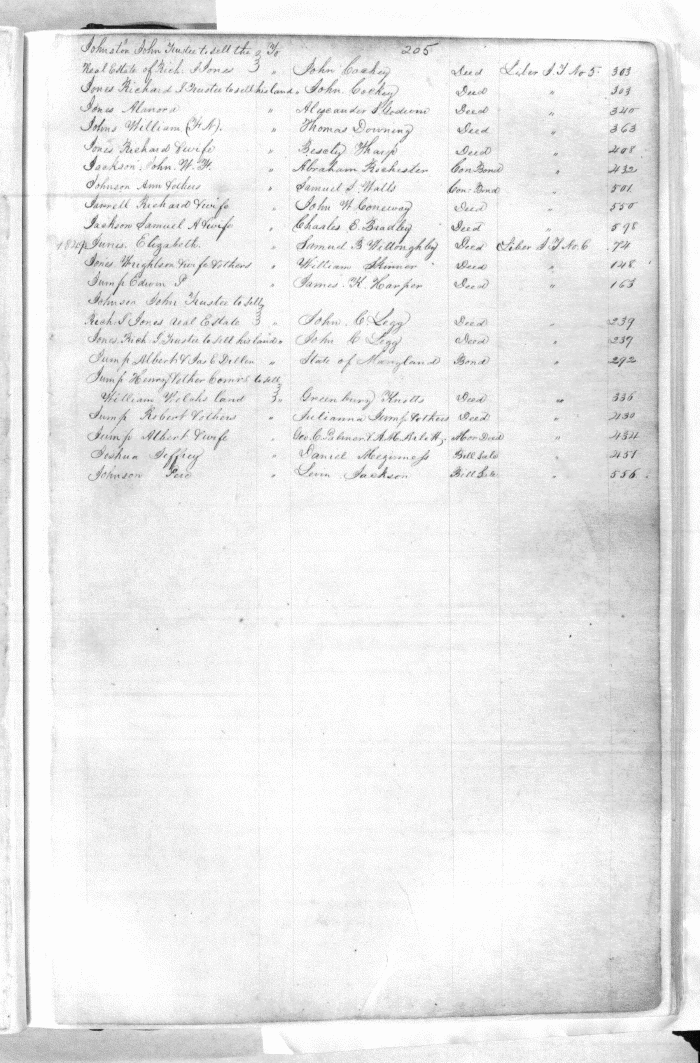 205
Johnston John Trustee to sell the } To
Real Estate of Rich. I Jones } " John Cockey Deed Liber J T No 5 303
Jones Richard I Trustee to sell his land " John Cockey Deed " 303
Jones " Alexander Deed " 340
Johns William (F N). " Thomas Downing Deed " 363
Jones Richard & wife " Tharp Deed " 408
Jackson John W. " Abraham Con Bond " 432
Johnson Ann & others " Samuel I. Watts Con. Bond " 501
Jarrell Richard & wife " John W Conaway Deed " 550
Jackson Samuel A & wife " Charles E. Bradley Deed " 598
Jones. Elizabeth. " Samuel B Willoughby Deed Liber J T No. 6 74
Jones Wrightson & wife & others " William Skinner Deed " 148
Jump Edwin P " James. K. Harper Deed " 163
Johnson John Trustee to sell }
Rich. I Jones real Estate } " John. C Legg Deed " 239
Jones. Rich. I. Trustee to sell his land " John C Legg Deed " 239
Jump Albert & Jas C " State of Maryland Bond " 292
Jump Henry & other Comrs to sell }
William Welchs land } " Greenbury Knotts Deed " 336
Jump Robert & others " Julianna Jump & others Deed " 430
Jump Albert & wife " Geo. C. Palmer & Mor Deed " 434
Joshua Jeffrey " Daniel Meginness Bill Sale " 451
Johnson Pere " Levin Jackson Bill Sale " 556